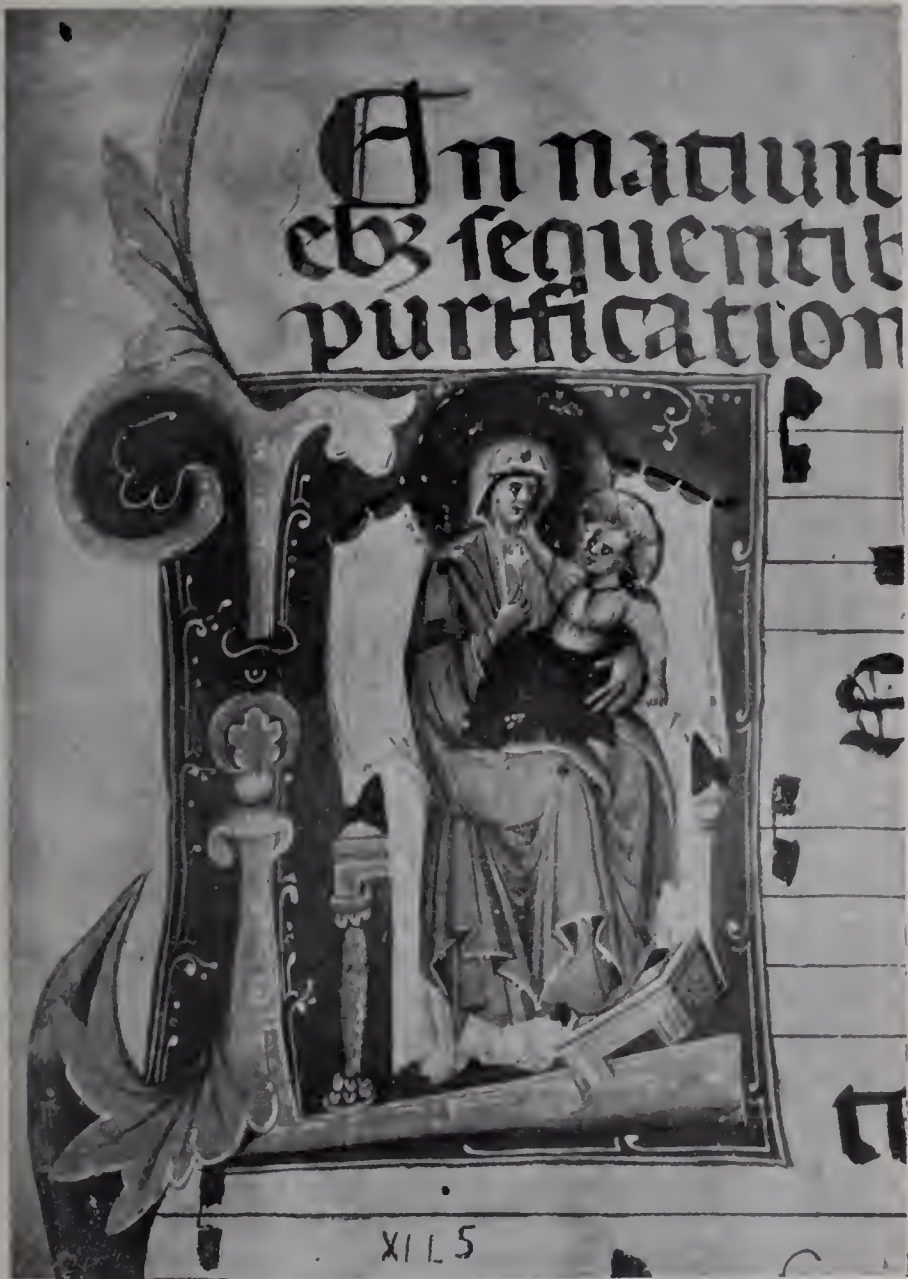 In natiuit
ebꝫ ſequentib
purification
XII L 5